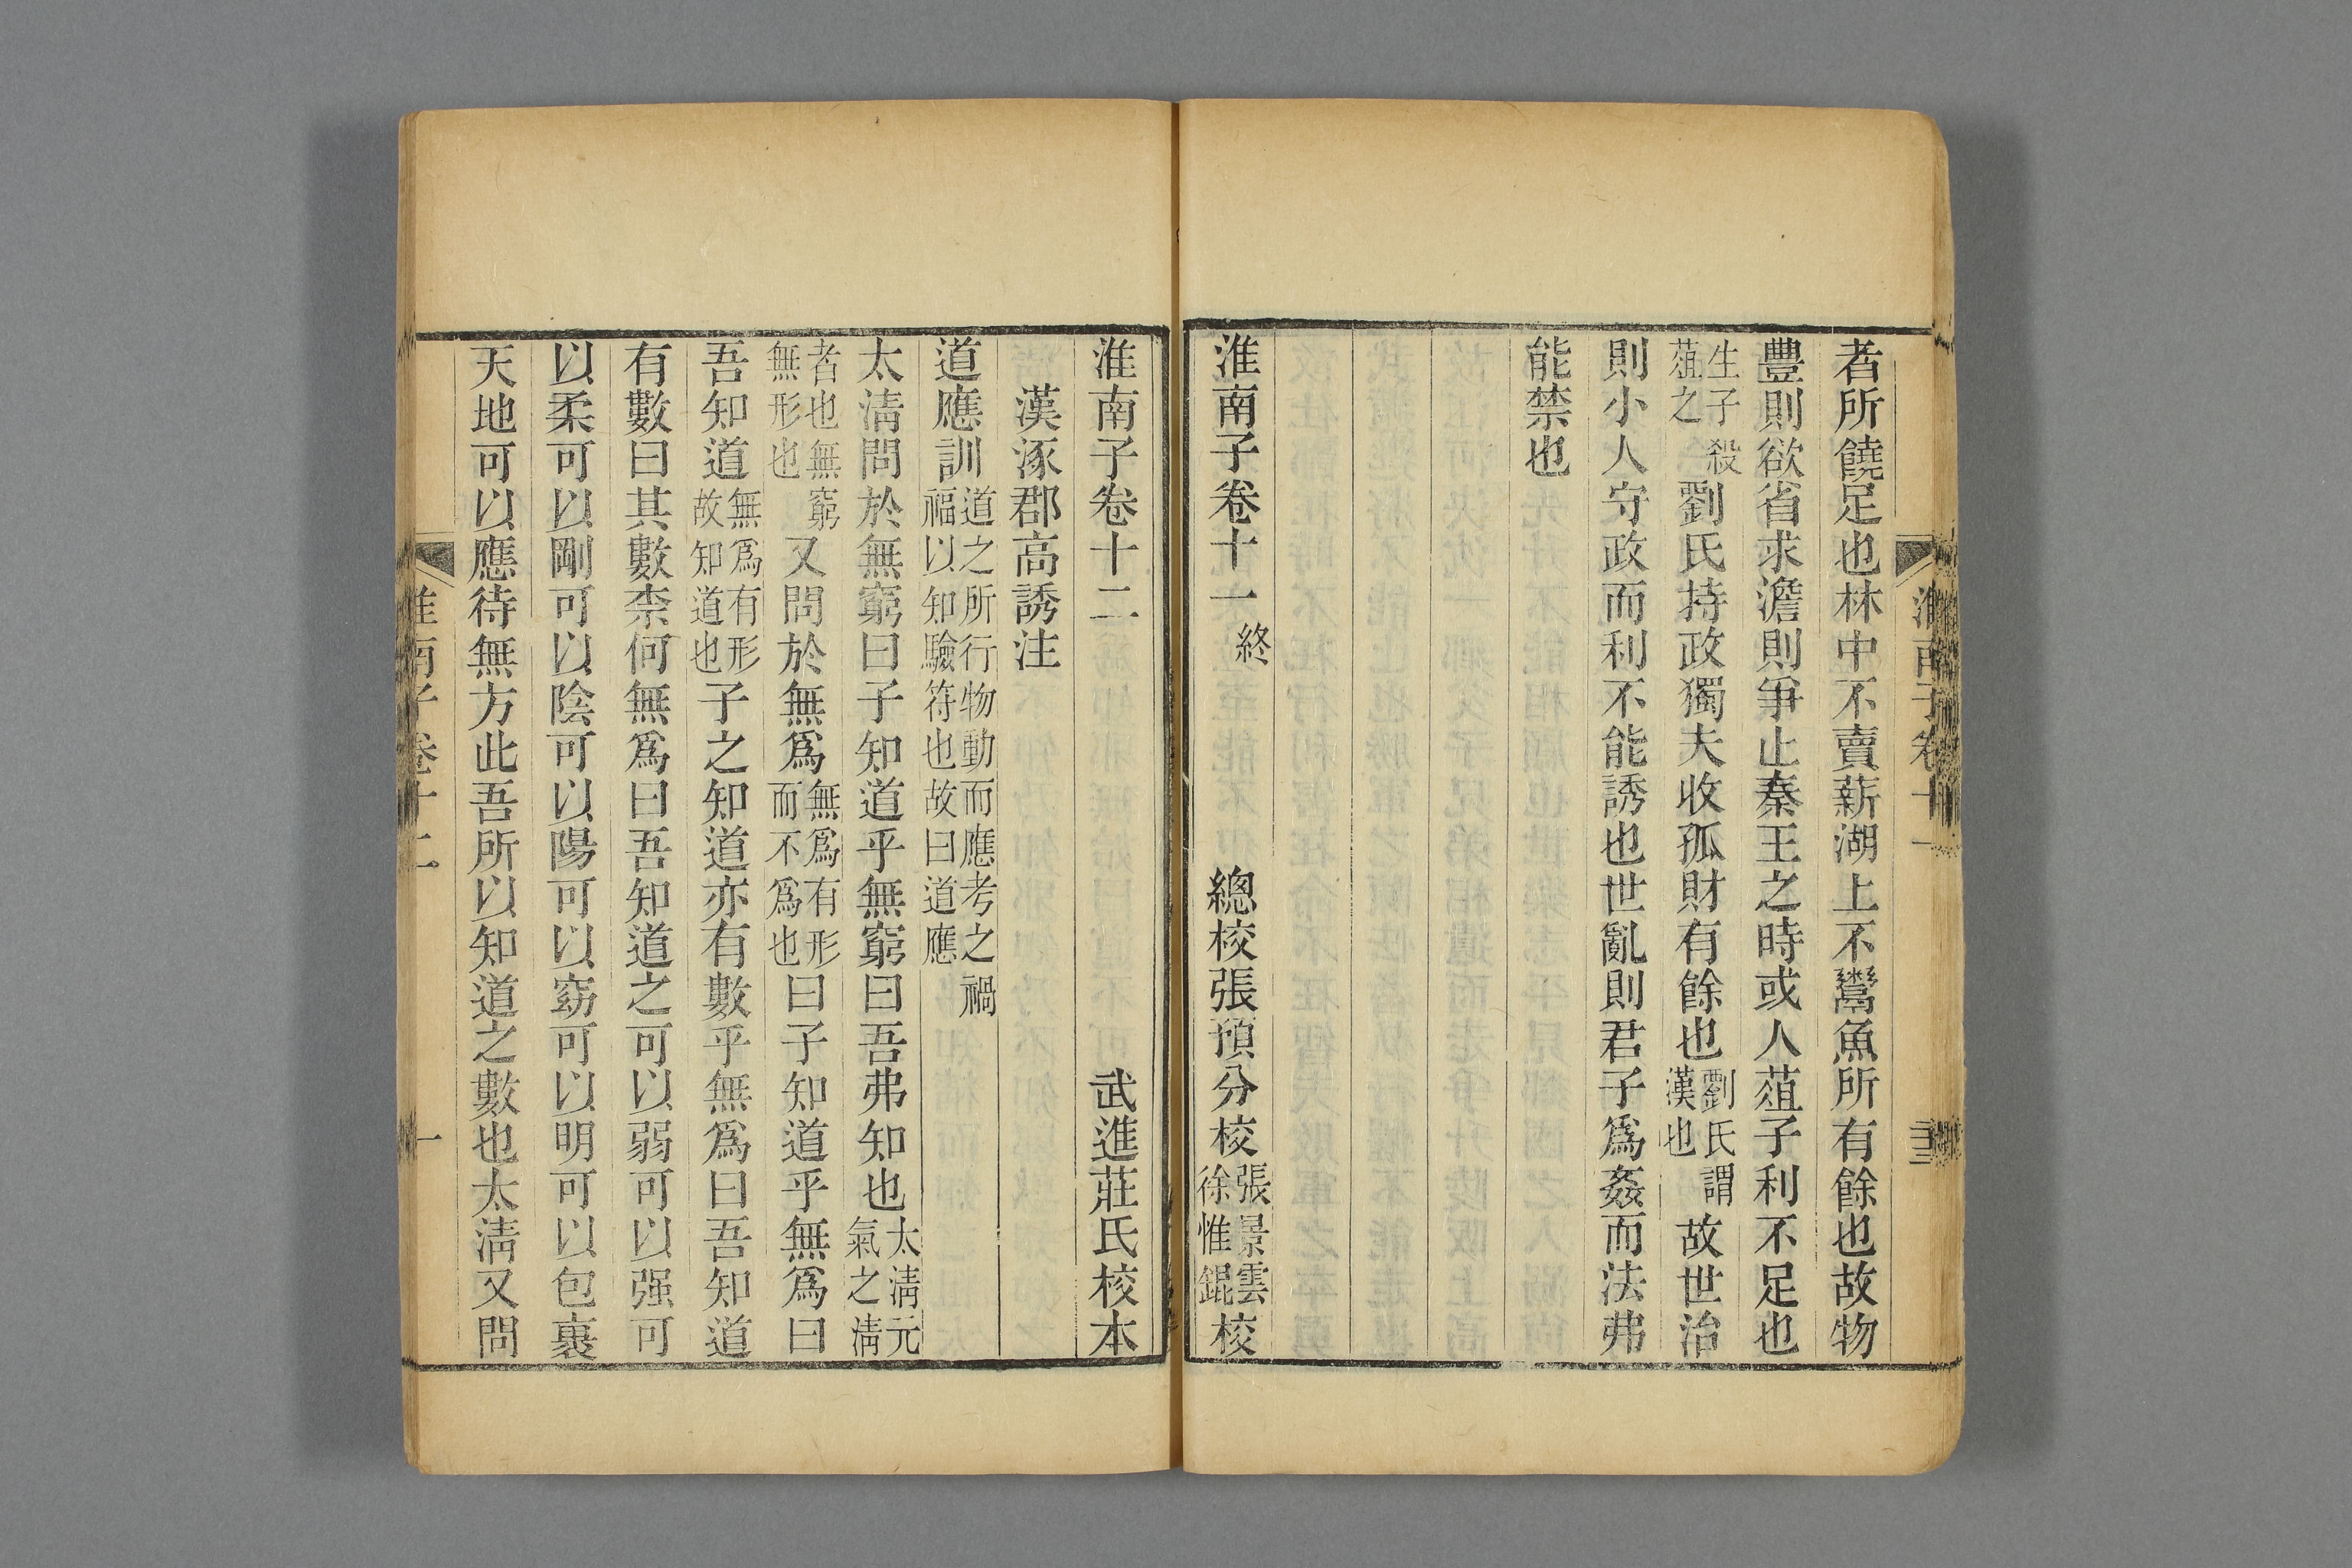 者所饒足也林中不賣薪湖上不鬻魚所有餘也故物
豐則欲省求澹則爭止秦王之時或人葅子利不足也
生子殺
葅之
劉氏持政獨夫收孤財有餘也
劉氏謂
漢也
故世治
則小人守政而利不能誘也世亂則君子爲姦而法弗
能禁也
淮南子卷十一終
總校張預分校
張景雲
徐惟錕
校
淮南子卷十二
武進莊氏校本
漢涿郡高誘注
道應訓
道之所行物動而應考之禍
福以知驗符也故曰道應
太清問於無窮曰子知道乎無窮曰吾弗知也
太清元
氣之清
者也無窮
無形也
又問於無爲
無爲有形
而不爲也
曰子知道乎無爲曰
吾知道
無爲有形
故知道也
子之知道亦有數乎無爲曰吾知道
有數曰其數柰何無爲曰吾知道之可以弱可以强可
以柔可以剛可以陰可以陽可以窈可以明可以包裹
天地可以應待無方此吾所以知道之數也太清又問
淮南子卷十二
一